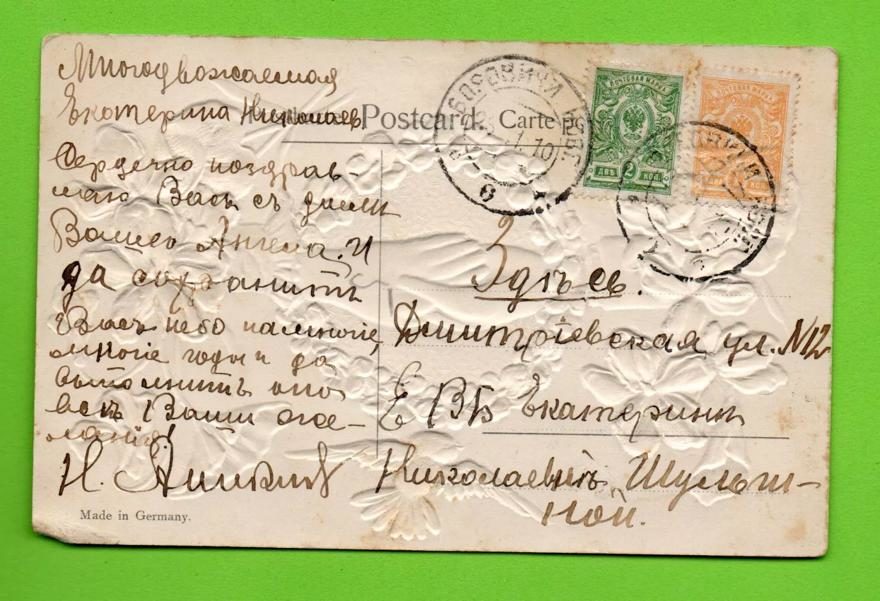 Многоуважаемая
Екатерина Николаев
Сердечно поздрав-
ляю Васъ съ днемъ
Вашего Ангела, И
да сохранитъ
Васъ небо на многіе,
многіе годы и да
выполнитъ оно
всѣ Ваши же-
ланія!
Н.
Made in Germany.
Postcard. Carte po
БОРОВИЧИ НОВГ.
1.10
6
ПОЧТОВАЯ МАРКА
ДВѢ 2 КОП.
ПОЧТОВАЯ МАРКА
КОП.
Здѣсь.
Дмитріевская ул. №12
Е ВБ Екатеринѣ
Николаевнѣ Шульги-
ной.